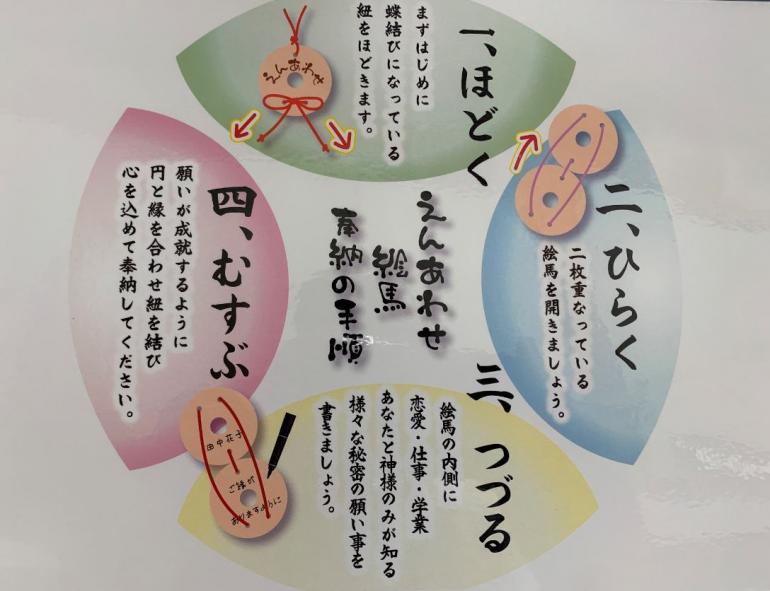 えんあわせ
絵馬
奉納の手順
一、ほどく
まずはじめに
蝶結びになっている
紐をほどきます。
えんあわせ
二、ひらく
二枚重なっている
絵馬を開きましょう。
三、つづる
絵馬の内側に
恋愛・仕事・学業
あなたと神様のみが知る
様々な秘密の願い事を
書きましょう。
田中花子
ご縁が
ありますように
四、むすぶ
願いが成就するように
円と縁を合わせ紐を結び
心を込めて奉納してください。